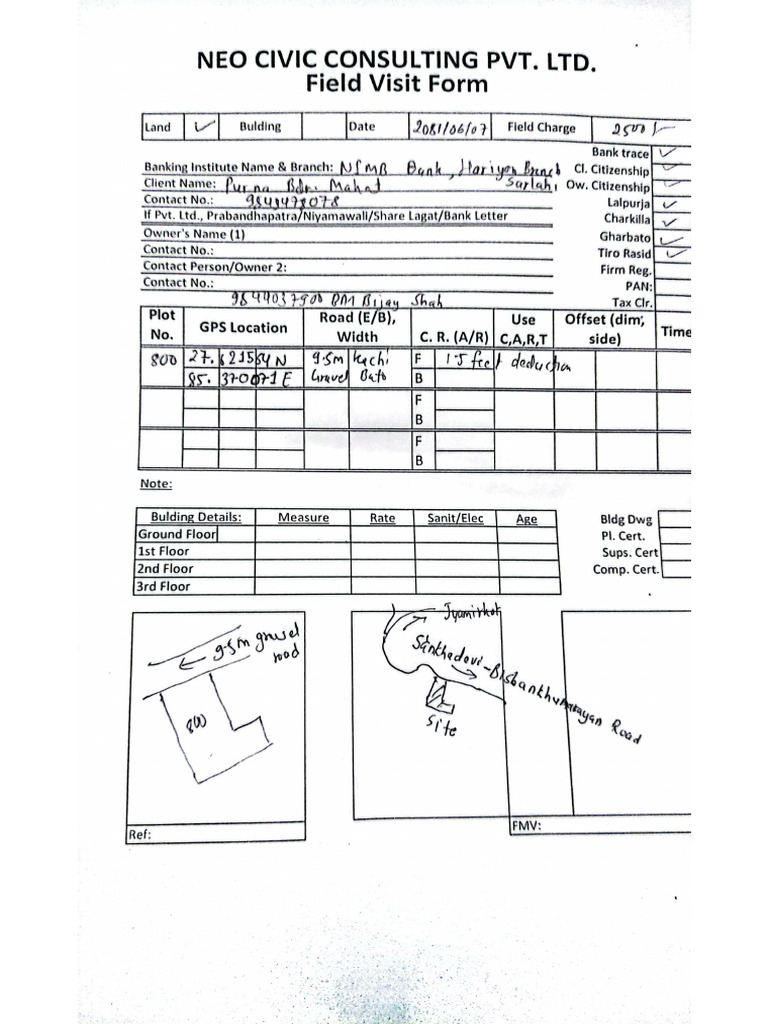 NEO CIVIC CONSULTING PVT. LTD.
Field Visit Form
Land ✓ Bulding Date 2081/06/07 Field Charge 2500/-
Bank trace ✓
Banking Institute Name & Branch: NIMB Bank, Hariyon Branch Cl. Citizenship ✓
Client Name: Purna Bdr. Mahat Sarlahi Ow. Citizenship ✓
Contact No.: Lalpurja ✓
If Pvt. Ltd., Prabandhapatra/Niyamawali/Share Lagat/Bank Letter Charkilla ✓
Owner's Name (1) Gharbato ✓
Contact No.: Tiro Rasid ✓
Contact Person/Owner 2: Firm Reg.
Contact No.: PAN:
9844037900 BM Bijay Shah Tax Clr.
Plot No. GPS Location Road (E/B), Width C. R. (A/R) Use C,A,R,T Offset (dim, side) Time
800 27. 621564 N 9.5m kachi F 1.5 feet deduction
85. 370071 E Gravel Bato B
F
B
F
B
Note:
Bulding Details: Measure Rate Sanit/Elec Age Bldg Dwg
Ground Floor Pl. Cert.
1st Floor Sups. Cert
2nd Floor Comp. Cert.
3rd Floor
9.5m gravel road
800
Ref:
Jyamirkot
Sankhadevi-Bisbankhunarayan Road
Site
FMV: